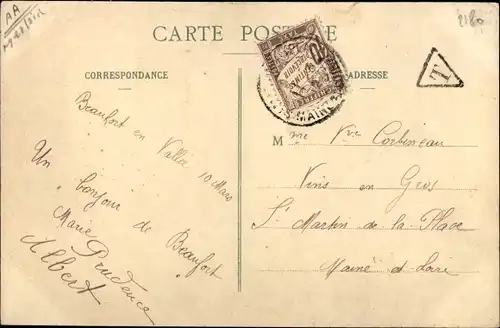 AA
CARTE POSTALE
2180
CORRESPONDANCE
ADRESSE
T
Beaufort en Vallée 10 Mars
Un bonjour de Beaufort
Marie Prudence
Albert
Mme Vve Corbineau
Vins en Gros
St Martin de la Place
Maine et Loire
MAINE